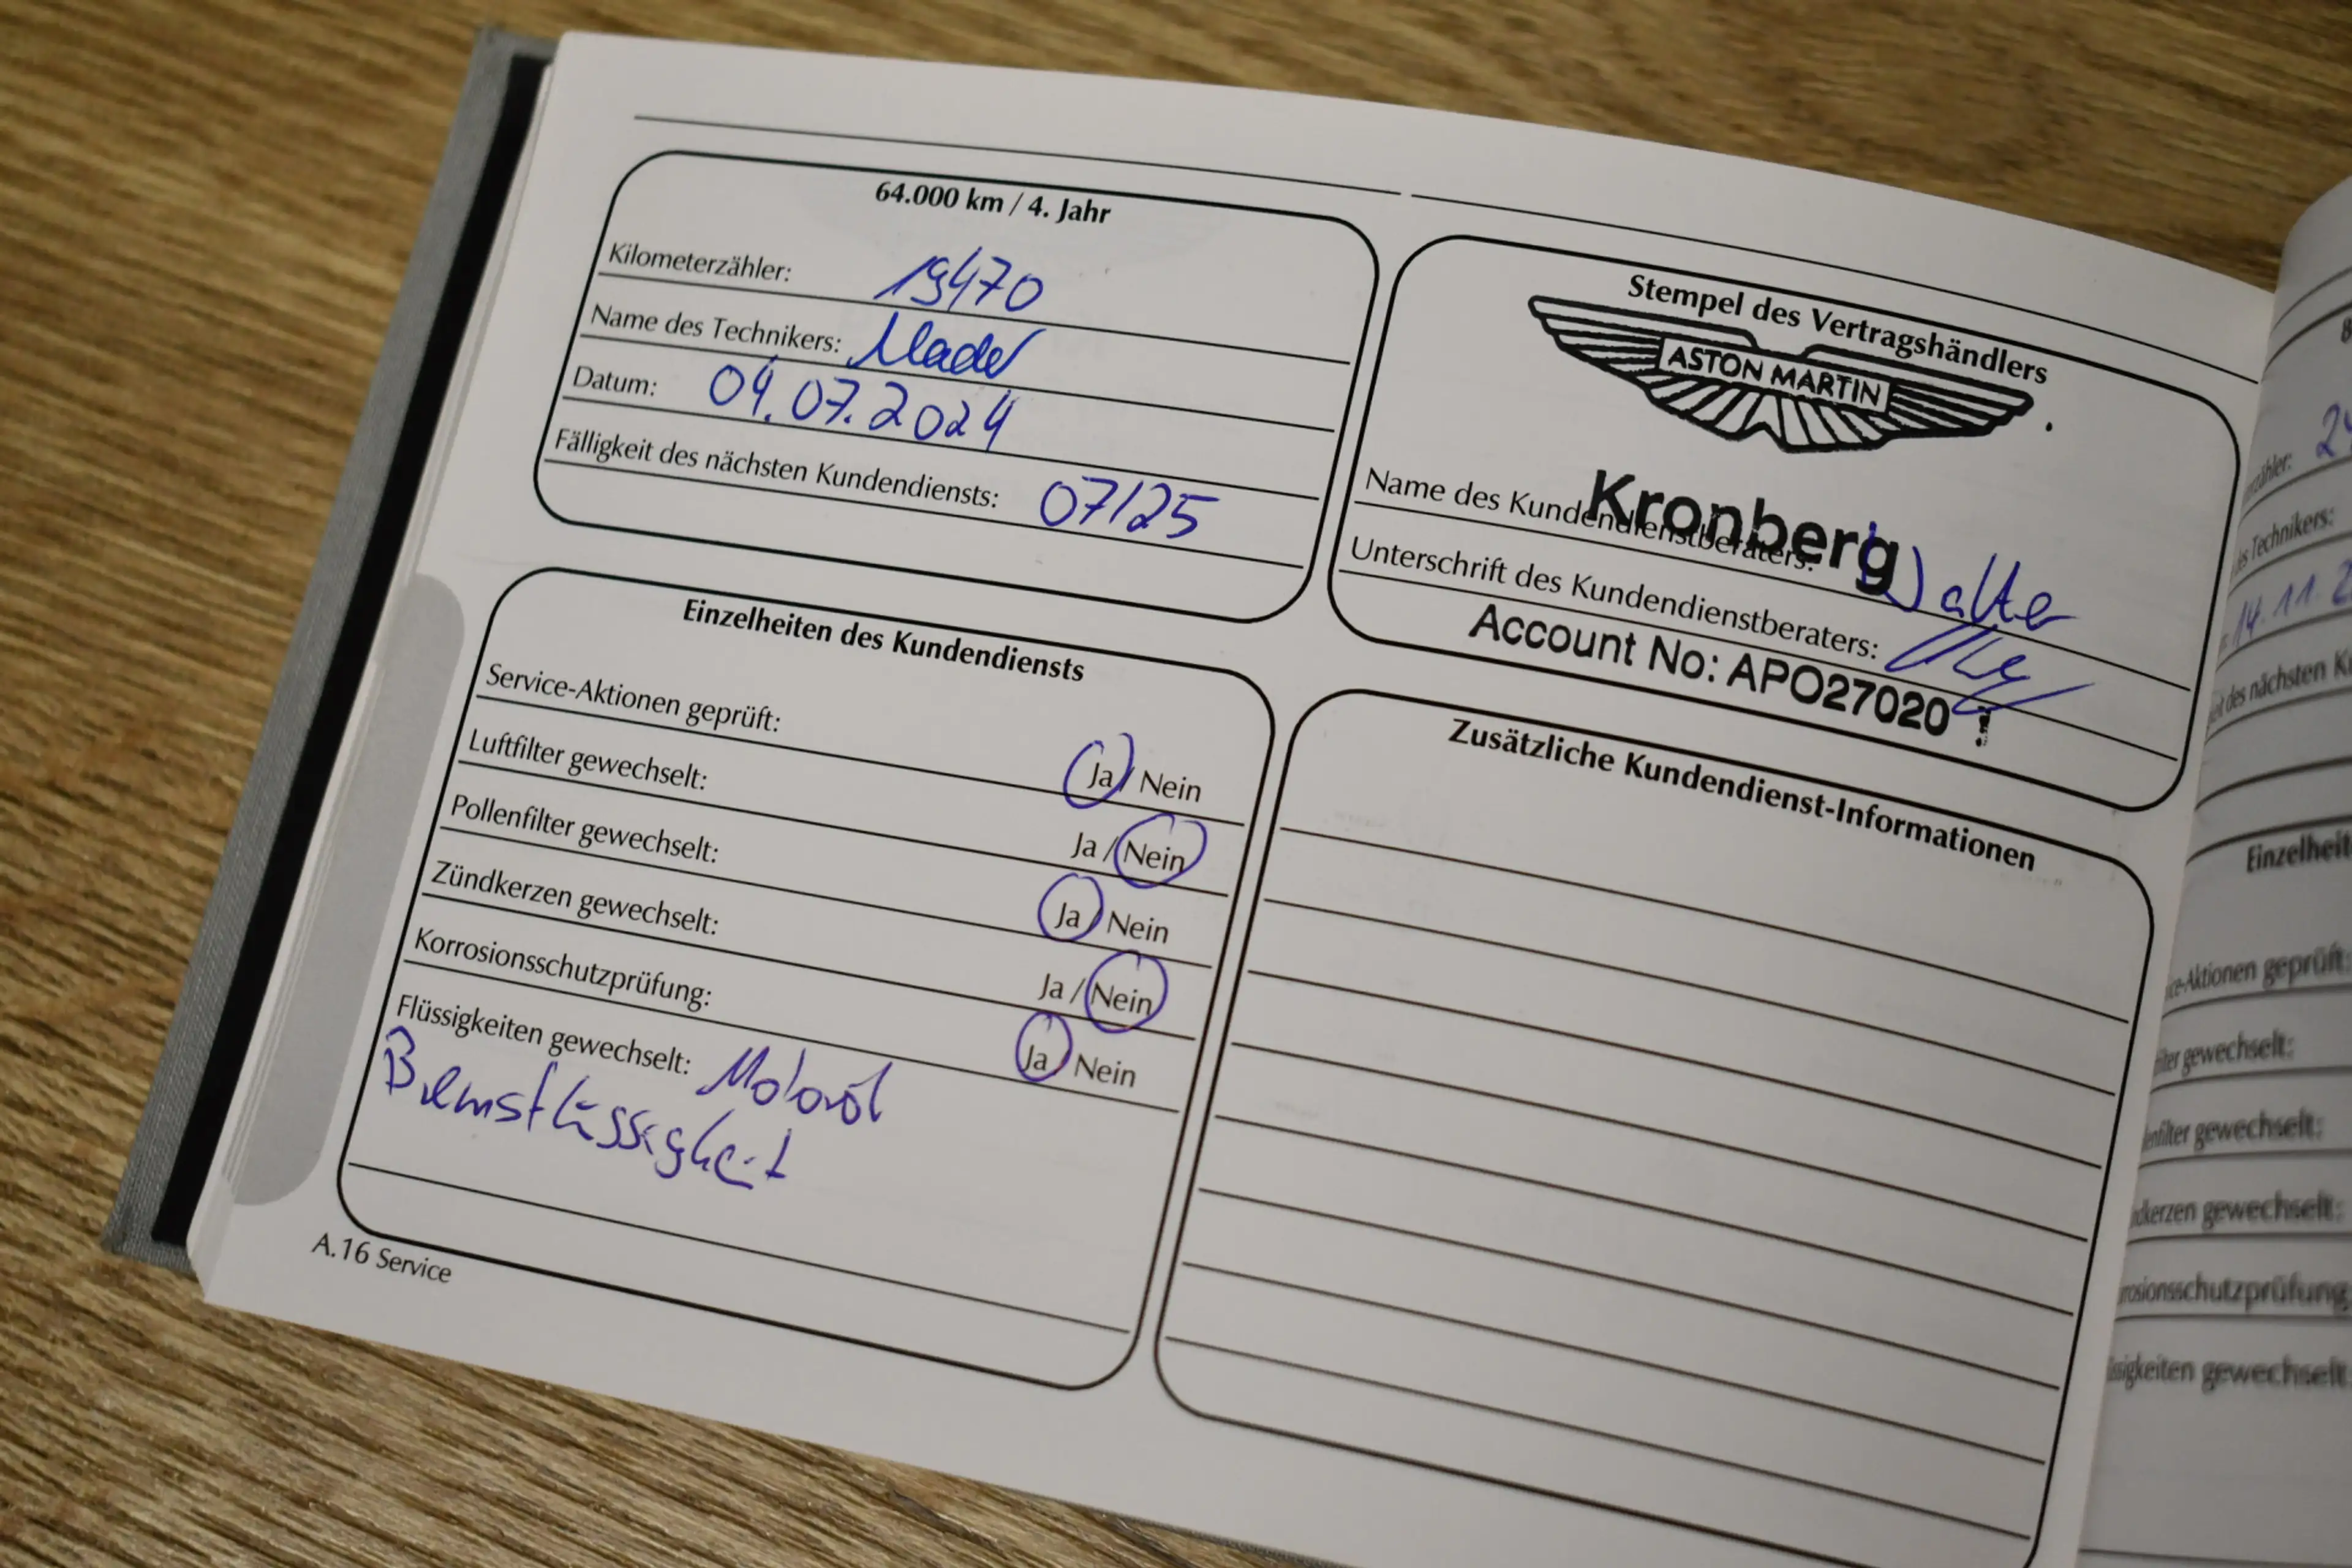 64.000 km / 4. Jahr
Kilometerzähler: 19470
Name des Technikers: Mader
Datum: 04.07.2024
Fälligkeit des nächsten Kundendiensts: 07/25
Stempel des Vertragshändlers
ASTON MARTIN
Kronberg
Name des Kundendienstberaters: Walter
Unterschrift des Kundendienstberaters:
Account No: APO27020
Einzelheiten des Kundendiensts
Service-Aktionen geprüft: Ja / Nein
Luftfilter gewechselt: Ja / Nein
Pollenfilter gewechselt: Ja / Nein
Zündkerzen gewechselt: Ja / Nein
Korrosionsschutzprüfung: Ja / Nein
Flüssigkeiten gewechselt: Motoröl
Bremsflüssigkeit
Zusätzliche Kundendienst-Informationen
A.16 Service
Technikers:
14.11.2
des nächsten
Einzelheit
geprüft:
gewechselt:
gewechselt:
gewechselt:
gewechselt: